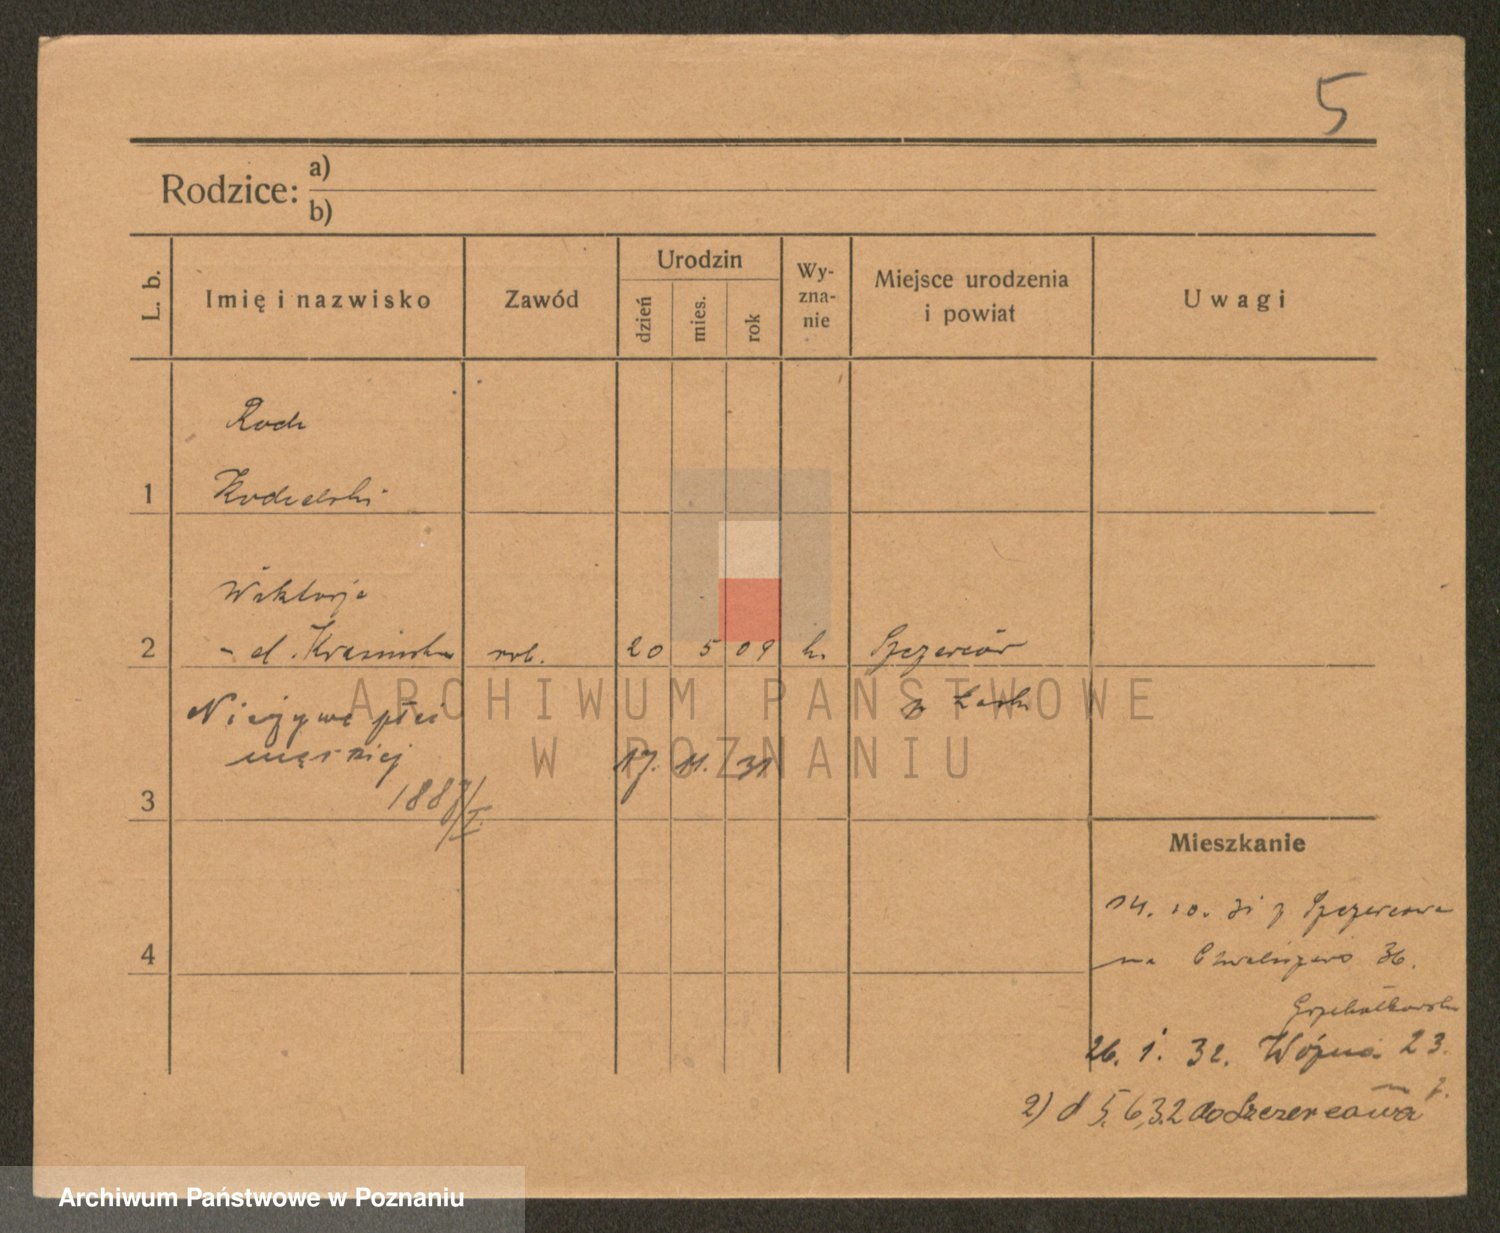 5
Rodzice: a)
b)
L. b.
Imię i nazwisko
Zawód
Urodzin
dzień
mies.
rok
Wy-
zna-
nie
Miejsce urodzenia
i powiat
Uwagi
Roch
1
Wiktorja
2 - d. Krasińska rob. 20 5 09 k. Szczerców
p. Łask
Nieżywe płci
męskiej 17. 11. 31
1887/I.
3
Mieszkanie
14. 10. 31 z Szczercowa
4
na Chwaliszewo 36.
26. 1. 32. Wózna 23.
2) d 5.6.32 do Szczercowa
ARCHIWUM PAŃSTWOWE
W POZNANIU
Archiwum Państwowe w Poznaniu